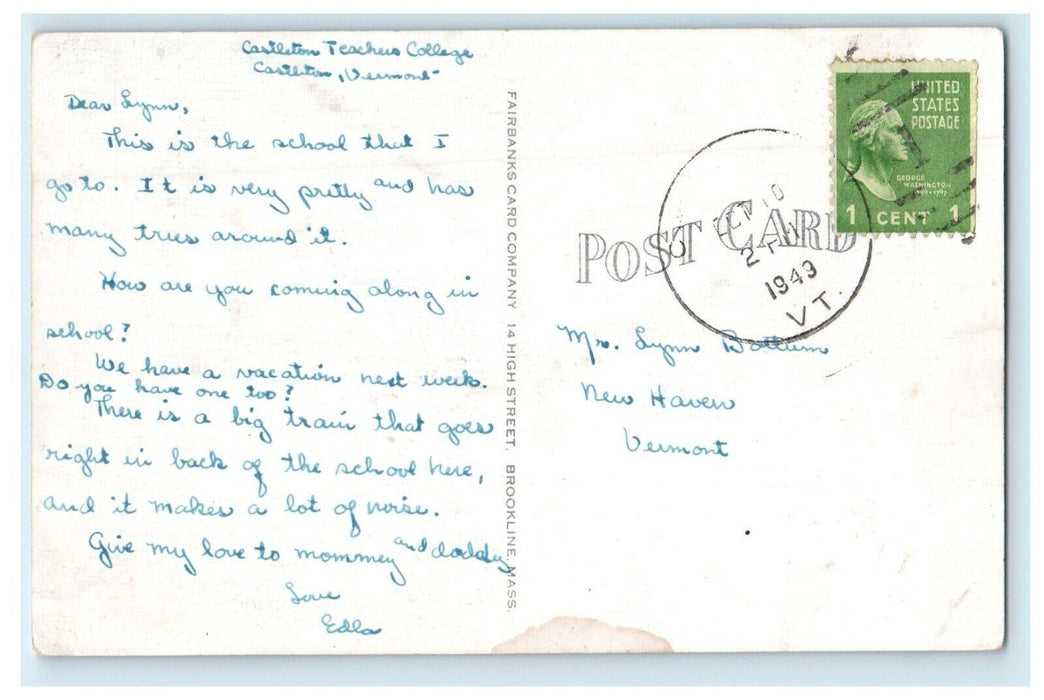 Castleton Teachers College
Castleton, Vermont
Dear Lynn,
This is the school that I
go to. It is very pretty and has
many trees around it.
How are you coming along in
school?
We have a vacation next week.
Do you have one too?
There is a big train that goes
right in back of the school here,
and it makes a lot of noise.
Give my love to mommey and daddy
Love
Edla
FAIRBANKS CARD COMPANY 14 HIGH STREET, BROOKLINE, MASS.
POST CARD
1949
VT.
UNITED
STATES
POSTAGE
GEORGE
WASHINGTON
1 CENT 1
Mr. Lynn Bottum
New Haven
Vermont